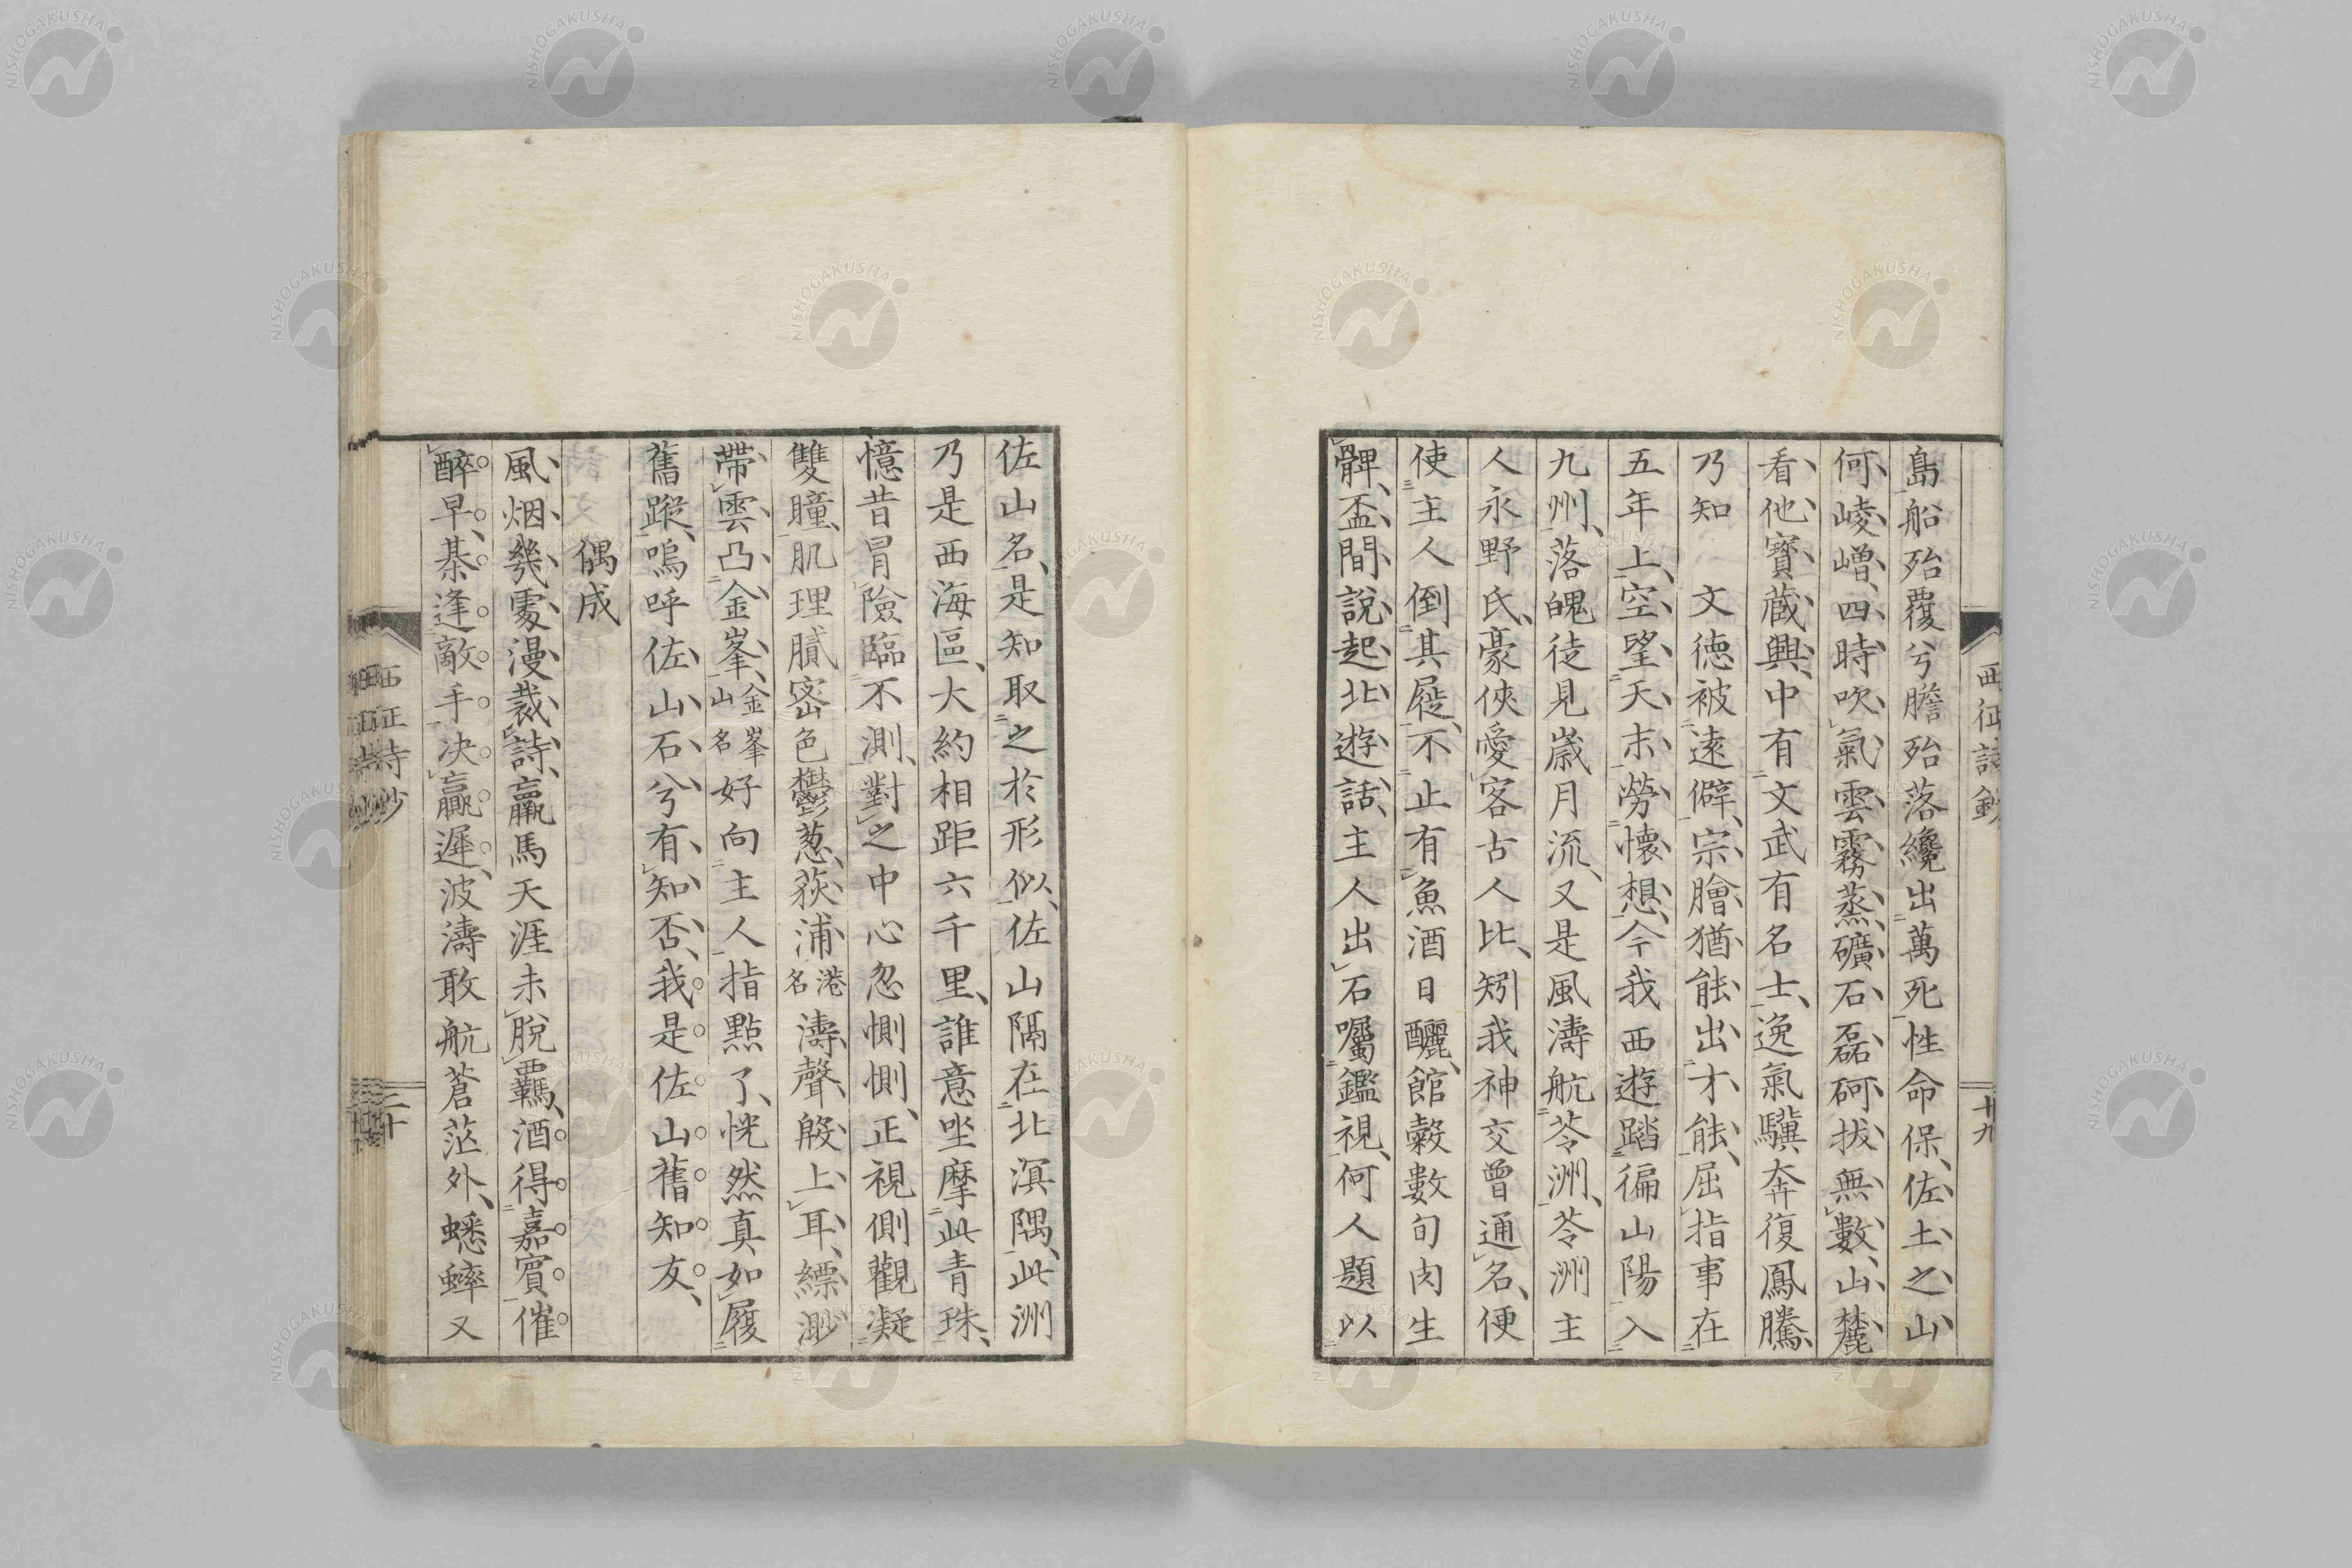 島船殆覆兮膽殆落纔出萬死性命保佐土之山
何崚嶒四時吹氣雲霧蒸礦石磊砢拔無數山麓
看他寶藏興中有文武有名士逸氣驥奔復鳳騰
乃知　文徳被遠僻宗膾猶能出才能屈指事在
五年上空望天末勞懷想今我西遊踏徧山陽入
九州落魄徒見歳月流又是風濤航苓洲苓洲主
人永野氏豪俠愛客古人比矧我神交曾通名便
使主人倒其屣不止有魚酒日釃館糓數旬肉生
髀盃間說起北遊話主人出石囑鑑視何人題以
西征詩鈔
十九
佐山名是知取之於形似佐山隔在北溟隅此洲
乃是西海區大約相距六千里誰意坐摩此青珠
憶昔冒險臨不測對之中心忽惻惻正視側觀凝
雙瞳肌理膩密色鬱葱荻浦港名濤聲殷上耳縹渺
帶雲凸金峯金峯山名好向主人指點了恍然真如履
舊蹤嗚呼佐山石兮有知否我是佐山舊知友
偶成
風烟幾處漫裁詩羸馬天涯未脫羈酒得嘉賓催
醉早棊逢敵手決贏遲波濤敢航蒼茫外蟋蟀又
三十
NISHOGAKUSHA